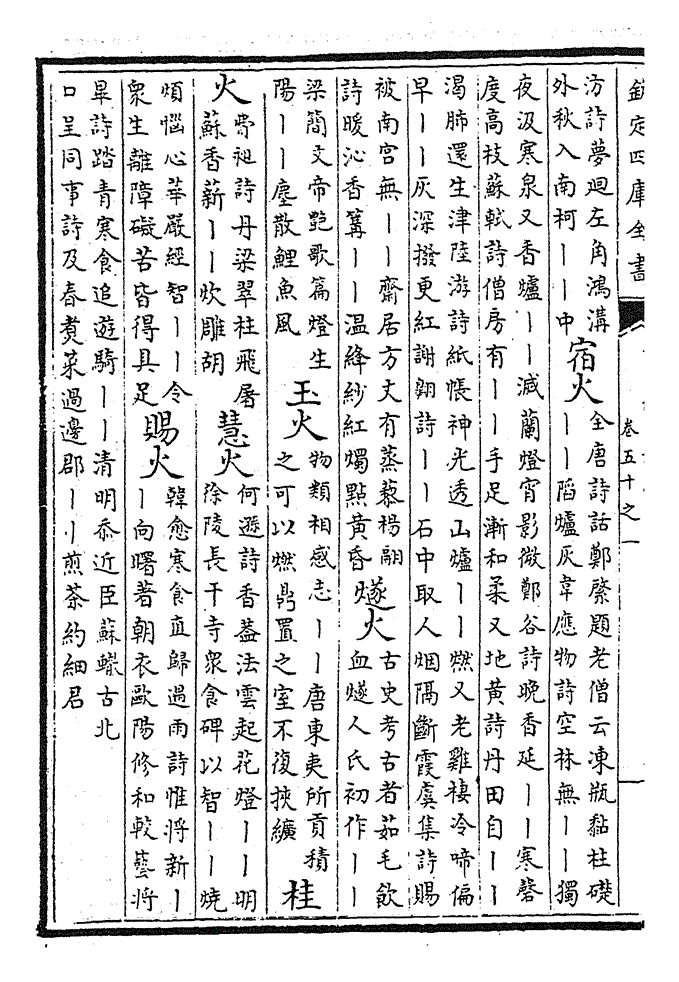 欽定四庫全書 卷五十之一
汸詩夢廻左角鴻溝
外秋入南柯丨丨中
宿火
全唐詩話鄭綮題老僧云凍瓶黏柱礎
丨丨䧟爐灰韋應物詩空林無丨丨獨
夜汲寒泉又香爐丨丨滅蘭燈宵影微鄭谷詩晚香延丨丨寒磬
度高枝蘇軾詩僧房有丨丨手足漸和柔又地黃詩丹田自丨丨
渴肺還生津陸游詩紙帳神光透山爐丨丨燃又老雞棲冷啼偏
早丨丨灰深撥更紅謝翶詩丨丨石中取人烟隔斷霞虞集詩賜
被南宮無丨丨齋居方丈有蒸藜楊翮
詩暖沁香篝丨丨溫絳紗紅燭點黃昏
燧火
古史考古者茹毛飲
血燧人氏初作丨丨
梁簡文帝艷歌篇燈生
陽丨丨塵散鯉魚風
玉火
物類相感志丨丨唐東夷所貢積
之可以燃鼎置之室不復挾纊
桂
火
費昶詩丹梁翠柱飛屠
蘇香薪丨丨炊雕胡
慧火
何遜詩香葢法雲起花燈丨丨明
徐陵長干寺衆食碑以智丨丨燒
煩惱心華嚴經智丨丨令
衆生離障礙苦皆得具足
賜火
韓愈寒食直歸遇雨詩惟將新丨
丨向曙著朝衣歐陽修和較藝將
畢詩踏青寒食追遊騎丨丨清明忝近臣蘇轍古北
口呈同事詩及春煑菜過邊郡丨丨煎茶約細君